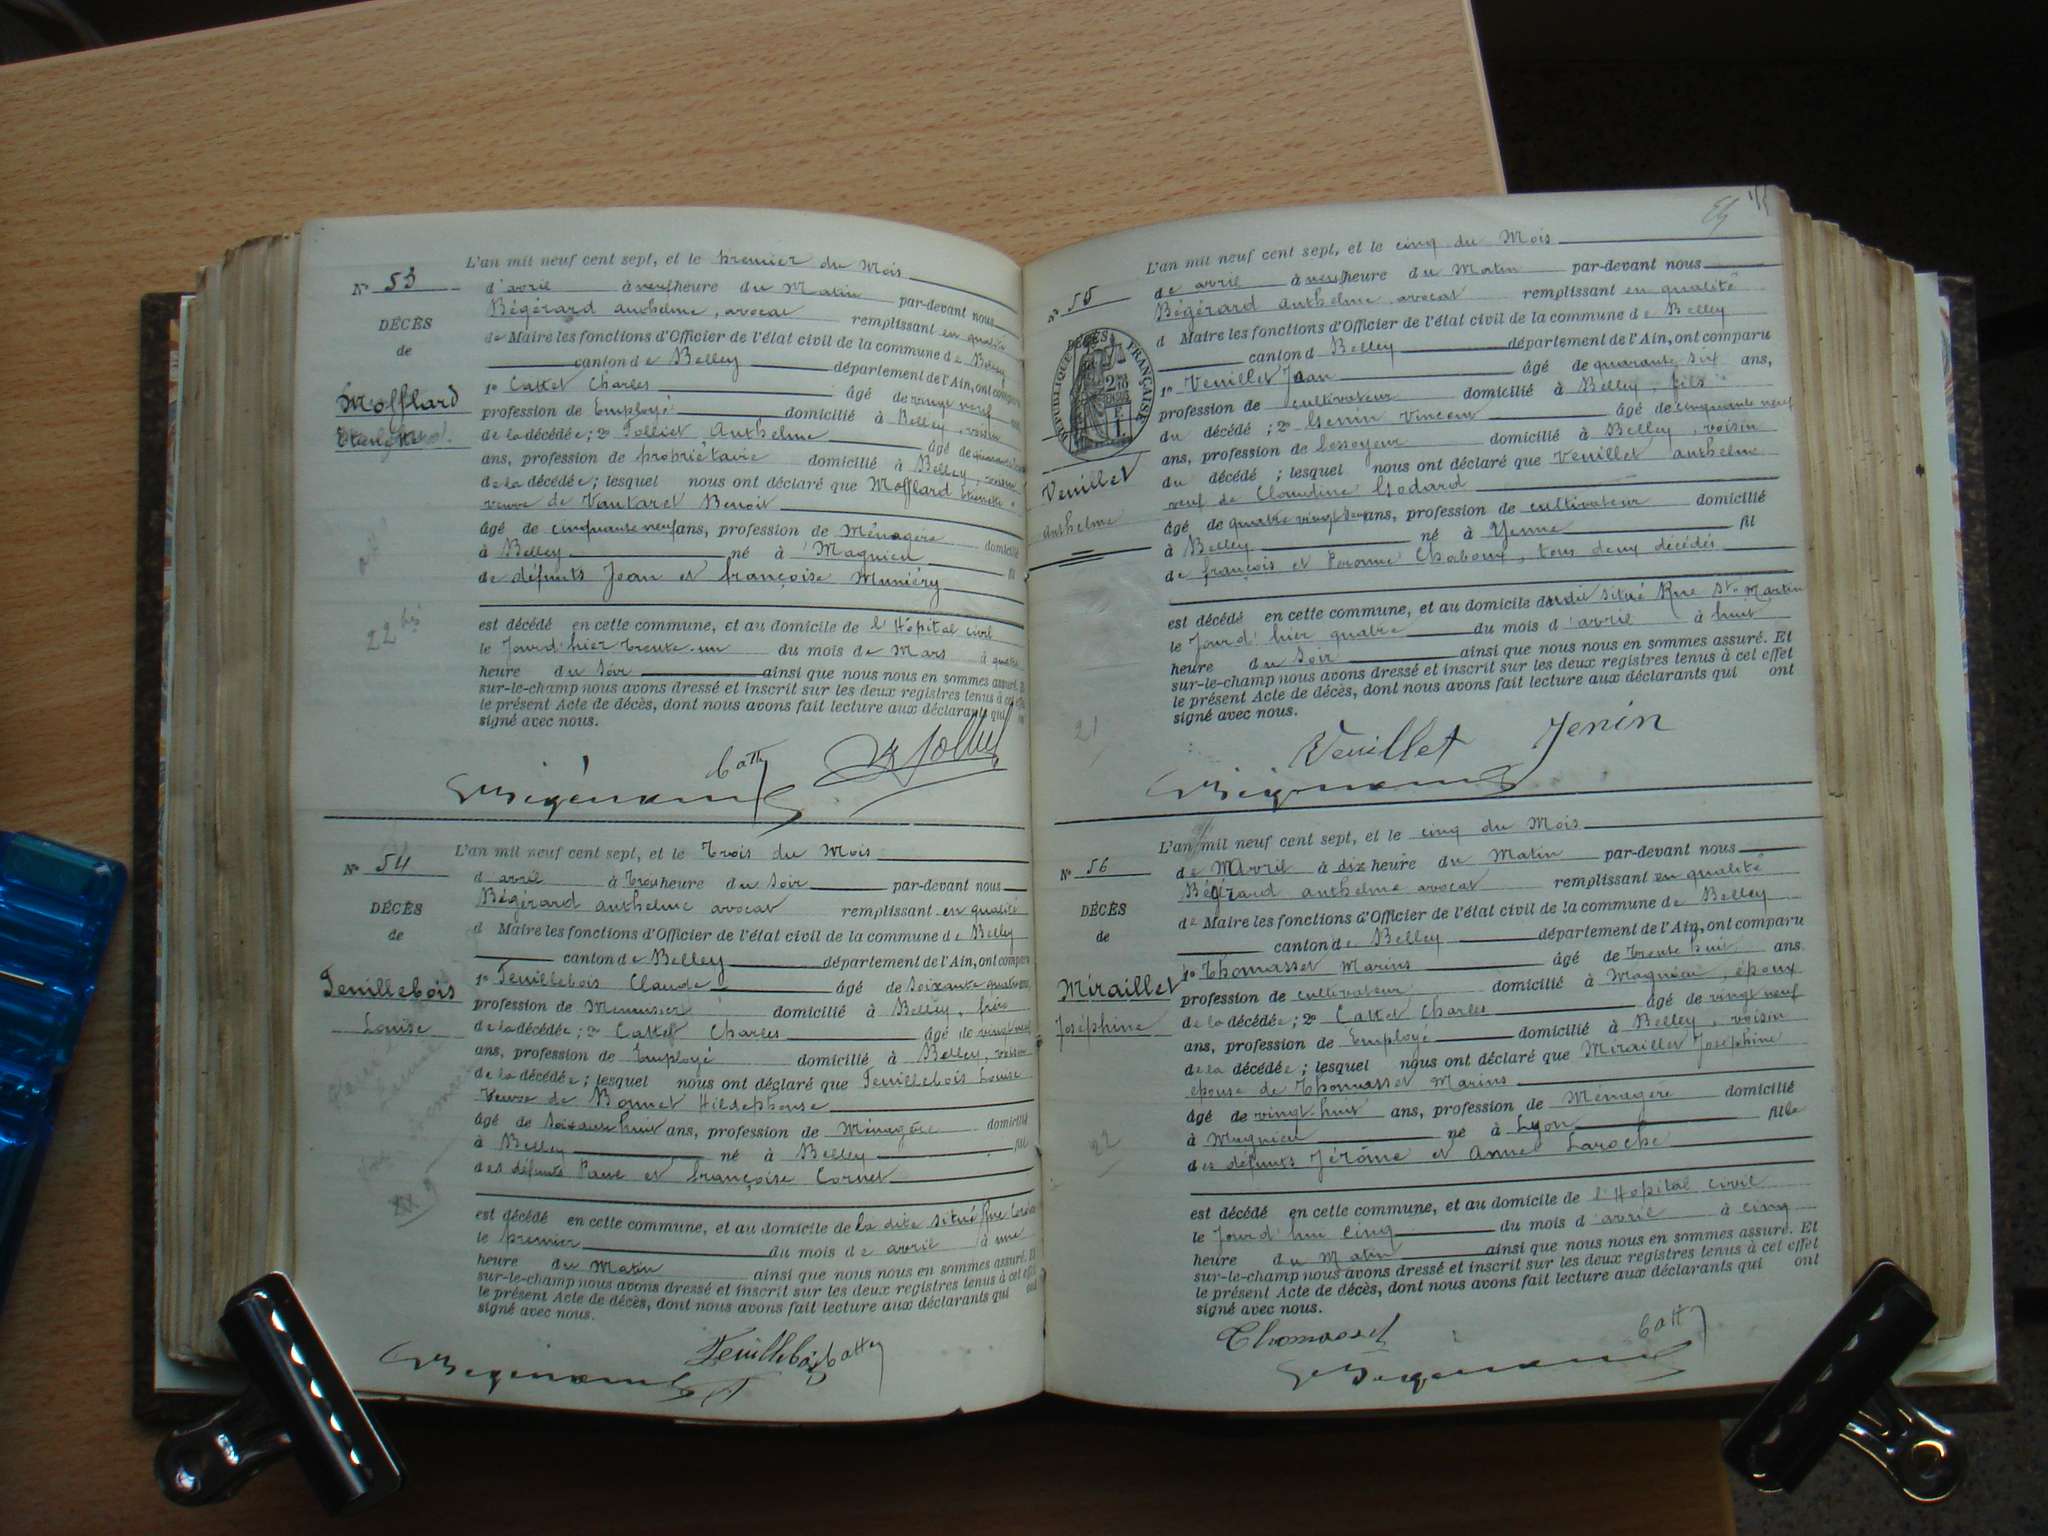 L'an mil neuf cent sept, et le premier du Mois
N° 53
d'avril à neuf heure du Matin par-devant nous
Bégérard anthelme, avocat remplissant en qualité
DÉCÈS
de Maire les fonctions d'Officier de l'état civil de la commune de Belley
de
canton de Belley département de l'Ain, ont comparu
1° Cattet Charles âgé de vingt neuf ans,
Mofflard
profession de Employé domicilié à Belley, voisin
de la décédée; 2° Folliet Anthelme âgé de
ans, profession de propriétaire domicilié à Belley, voisin
de la décédée; lesquel nous ont déclaré que Mofflard
veuve de Vautaret Benoit
âgé de cinquante neuf ans, profession de Ménagère domicilié
à Belley né à Magnieu fil
de défunts Jean et françoise Muniéry
22 bis
est décédé en cette commune, et au domicile de l'Hôpital civil
le Jourd'hier trente-un du mois de Mars à
heure du Soir ainsi que nous nous en sommes assuré. Et
sur-le-champ nous avons dressé et inscrit sur les deux registres tenus à cet effet
le présent Acte de décès, dont nous avons fait lecture aux déclarants qui ont
signé avec nous.
L'an mil neuf cent sept, et le Trois du Mois
N° 54
d avril à Trois heure du Soir par-devant nous
Bégérard anthelme avocat remplissant en qualité
DÉCÈS
d Maire les fonctions d'Officier de l'état civil de la commune de Belley
de
canton de Belley département de l'Ain, ont comparu
Feuillebois
1° Feuillebois Claude âgé de Soixante quatre ans,
profession de Menuisier domicilié à Belley, frère
Louise
de la décédée; 2° Cattet Charles âgé de vingt neuf
ans, profession de Employé domicilié à Belley, voisin
de la décédée; lesquel nous ont déclaré que Feuillebois Louise
Veuve de Bonnet Hildephonse
âgé de Soixante huit ans, profession de Ménagère domicilié
à Belley né à Belley fil
des défunts Paul et françoise Cornet
est décédé en cette commune, et au domicile de la dite situé Rue
le premier du mois de avril à une
heure du Matin ainsi que nous nous en sommes assuré. Et
sur-le-champ nous avons dressé et inscrit sur les deux registres tenus à cet effet
le présent Acte de décès, dont nous avons fait lecture aux déclarants qui ont
signé avec nous.
Feuillebois
L'an mil neuf cent sept, et le cinq du Mois
N° 55
de avril à neuf heure du Matin par-devant nous
Bégérard anthelme avocat remplissant en qualité
d Maire les fonctions d'Officier de l'état civil de la commune de Belley
DÉCÈS
RÉPUBLIQUE FRANÇAISE
canton d Belley département de l'Ain, ont comparu
1° Veuillet Jean âgé de quarante six ans,
profession de cultivateur domicilié à Belley, fils
du décédé; 2° Genin Vincent âgé de cinquante neuf
ans, profession de domicilié à Belley, voisin
Veuillet
du décédé; lesquel nous ont déclaré que Veuillet anthelme
veuf de Claudine Godard
anthelme
âgé de quatre vingt ans, profession de cultivateur domicilié
à Belley né à Yenne fil
de françois et Peronne Chaboux, tous deux décédés
est décédé en cette commune, et au domicile dudit situé Rue St-Martin
le Jourd'hier quatre du mois d'avril à huit
heure du Soir ainsi que nous nous en sommes assuré. Et
sur-le-champ nous avons dressé et inscrit sur les deux registres tenus à cet effet
le présent Acte de décès, dont nous avons fait lecture aux déclarants qui ont
signé avec nous.
21
Veuillet Jenin
L'an mil neuf cent sept, et le cinq du Mois
N° 56
de avril à dix heure du Matin par-devant nous
Bégérard anthelme avocat remplissant en qualité
DÉCÈS
de Maire les fonctions d'Officier de l'état civil de la commune de Belley
de
canton de Belley département de l'Ain, ont comparu
1° Thomasset Marius âgé de Trente huit ans
Miraillet
profession de cultivateur domicilié à Magnieu, époux
de la décédée; 2° Cattet Charles âgé de vingt neuf
Joséphine
ans, profession de Employé domicilié à Belley, voisin
de la décédée; lesquel nous ont déclaré que Miraillet Joséphine
épouse de Thomasset Marius
âgé de vingt huit ans, profession de Ménagère domicilié
à Magnieu né à Lyon fille
des défunts Jérôme et Annet Laroche
22
est décédé en cette commune, et au domicile de l'Hopital civil
le Jourd'hui Cinq du mois d'avril à cinq
heure du Matin ainsi que nous nous en sommes assuré. Et
sur-le-champ nous avons dressé et inscrit sur les deux registres tenus à cet effet
le présent Acte de décès, dont nous avons fait lecture aux déclarants qui ont
signé avec nous.
Thomasset